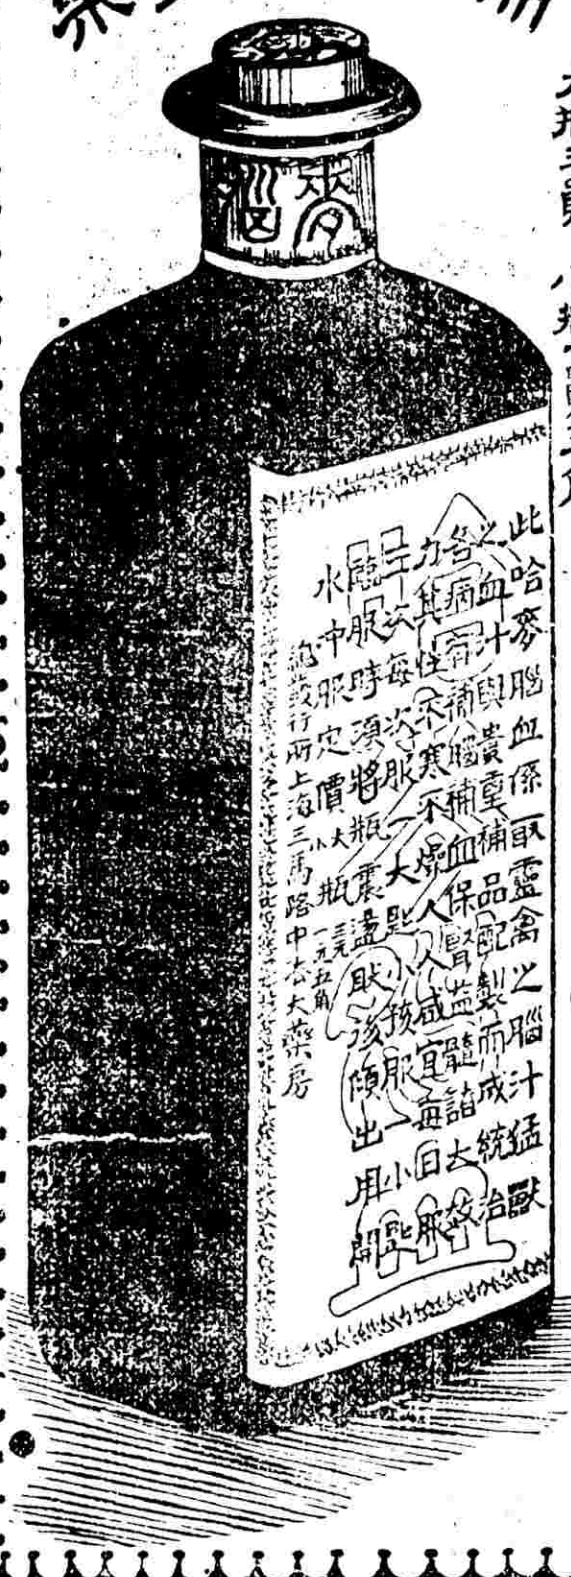 此哈麥腦血係取靈禽之腦汁猛獸
之血汁與貴重補品配製而成統治
各病補腦補血保腎益髓諸大效
力其性不寒不燥人人咸宜每日服
三次每次服一大匙小孩服一小匙
臨服時須將瓶震盪然後傾出用開
水中服定價大瓶三元小瓶一元五角
總發行所上海三馬路中法大藥房